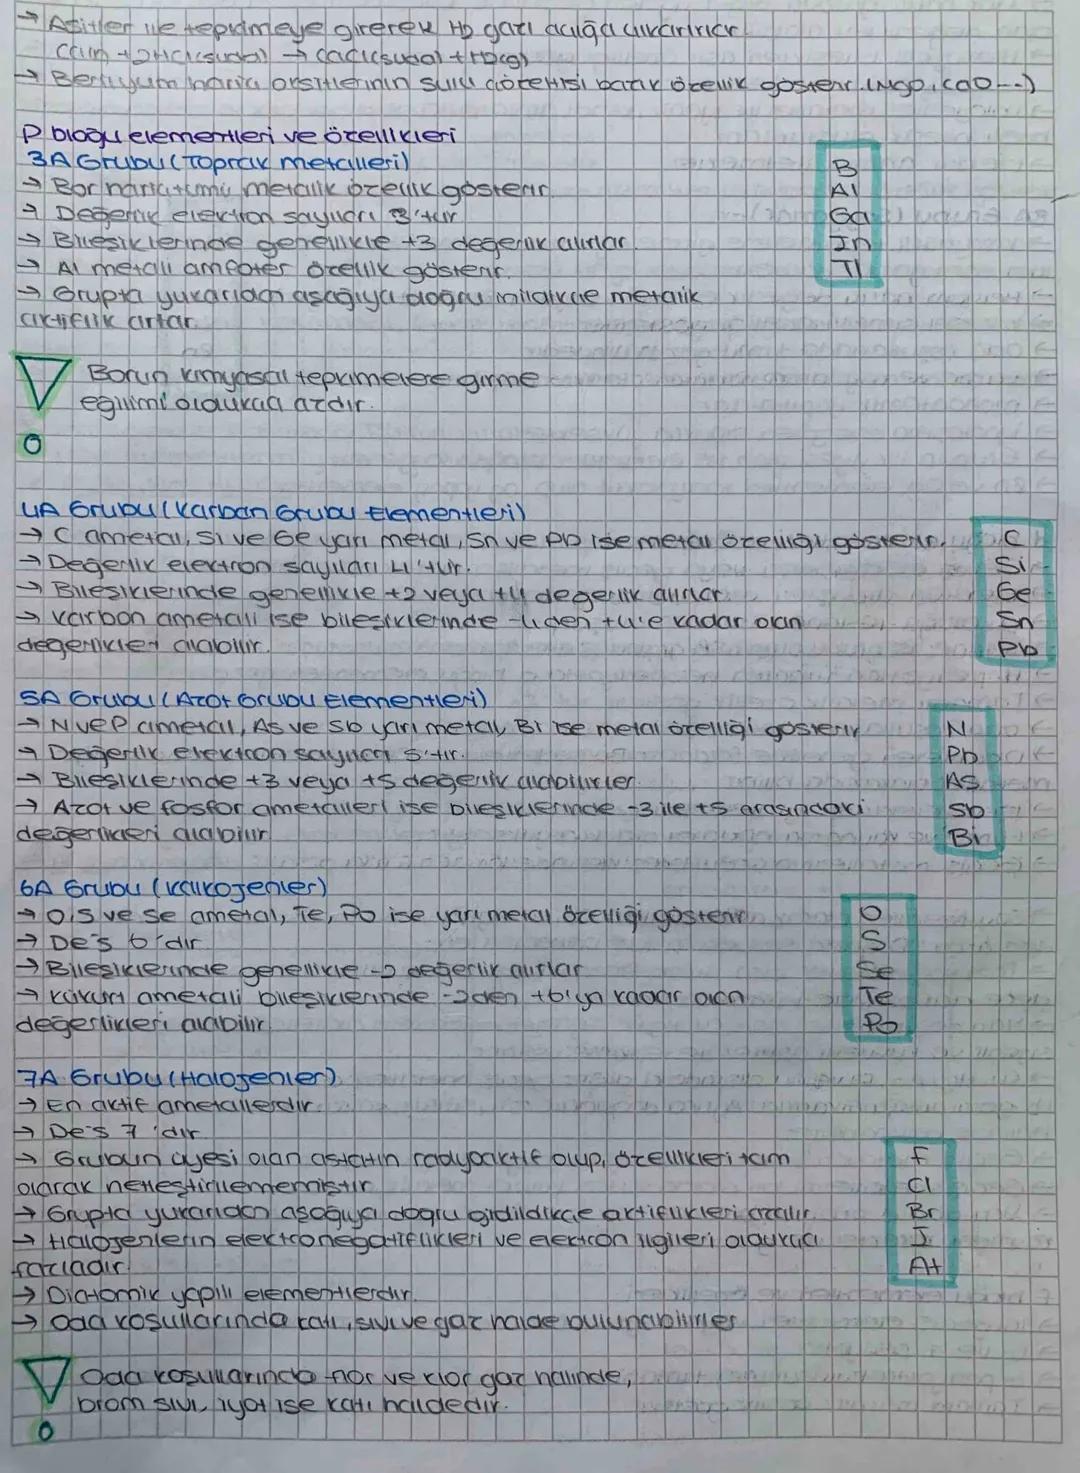 → Asitler ile tepkimeye girerek H2 gazı açığa çıkarırlar
Ca(k) + 2HCl(suda) → CaCl(suda) + H2(g)
→ Berilyum hariç oksitlerinin sulu çözeltisi bazik özellik gösterir. (MgO, CaO--)
P bloğu elementleri ve özellikleri
3A Grubu (Toprak metalleri)
→ Bor hariç tümü metalik özellik gösterir.
→ Değerlik elektron sayıları 3'tür
→ Bileşiklerinde genellikle +3 değerlik alırlar.
→ Al metali amfoter özellik gösterir.
→ Grupta yukarıdan aşağıya doğru inildikçe metalik
aktiflik artar.
B
Al
Ga
In
Tl
Borun kimyasal tepkimelere girme
eğilimi oldukça azdır.
4A Grubu (Karbon Grubu Elementleri)
→ C ametal, Si ve Ge yarı metal, Sn ve Pb ise metal özelliği gösterir.
→ Değerlik elektron sayıları 4'tür.
→ Bileşiklerinde genellikle +2 veya +4 değerlik alırlar.
→ Karbon ametali ise bileşiklerinde -4'den +4'e kadar olan
değerlikleri alabilir.
C
Si
Ge
Sn
Pb
5A Grubu (Azot Grubu Elementleri)
→ N ve P ametal, As ve Sb yarı metal, Bi ise metal özelliği gösterir
→ Değerlik elektron sayıları 5'tir.
→ Bileşiklerinde +3 veya +5 değerlik alabilirler.
→ Azot ve fosfor ametalleri ise bileşiklerinde -3 ile +5 arasındaki
değerlikleri alabilir.
N
Pb
As
Sb
Bi
6A Grubu (Kalkojenler)
→ O, S ve Se ametal, Te, Po ise yarı metal özelliği gösterir
→ De's 6'dır.
→ Bileşiklerinde genellikle -2 değerlik alırlar
→ Kükürt ametali bileşiklerinde -2'den +6'ya kadar olan
değerlikleri alabilir.
O
S
Se
Te
Po
7A Grubu (Halojenler)
→ En aktif ametallerdir.
→ De's 7'dir.
→ Grubun üyesi olan astatin radyoaktif olup, özellikleri tam
olarak netleştirilememiştir
→ Grupta yukarıdan aşağıya doğru gidildikçe aktiflikleri azalır.
→ Halojenlerin elektronegatiflikleri ve elektron ilgileri oldukça
fazladır.
→ Diatomik yapılı elementlerdir.
→ Oda koşullarında katı, sıvı ve gaz halde bulunabilirler
F
Cl
Br
I
At
Oda koşullarında flor ve klor gaz halinde,
brom sıvı, iyot ise katı haldedir.